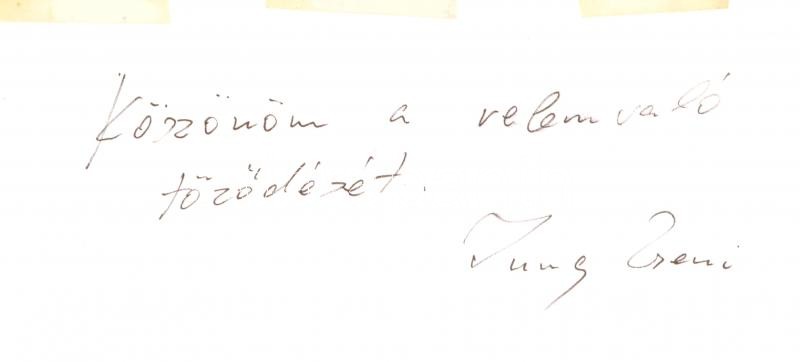 Köszönöm a velemvaló
törődését.
Jung Zseni